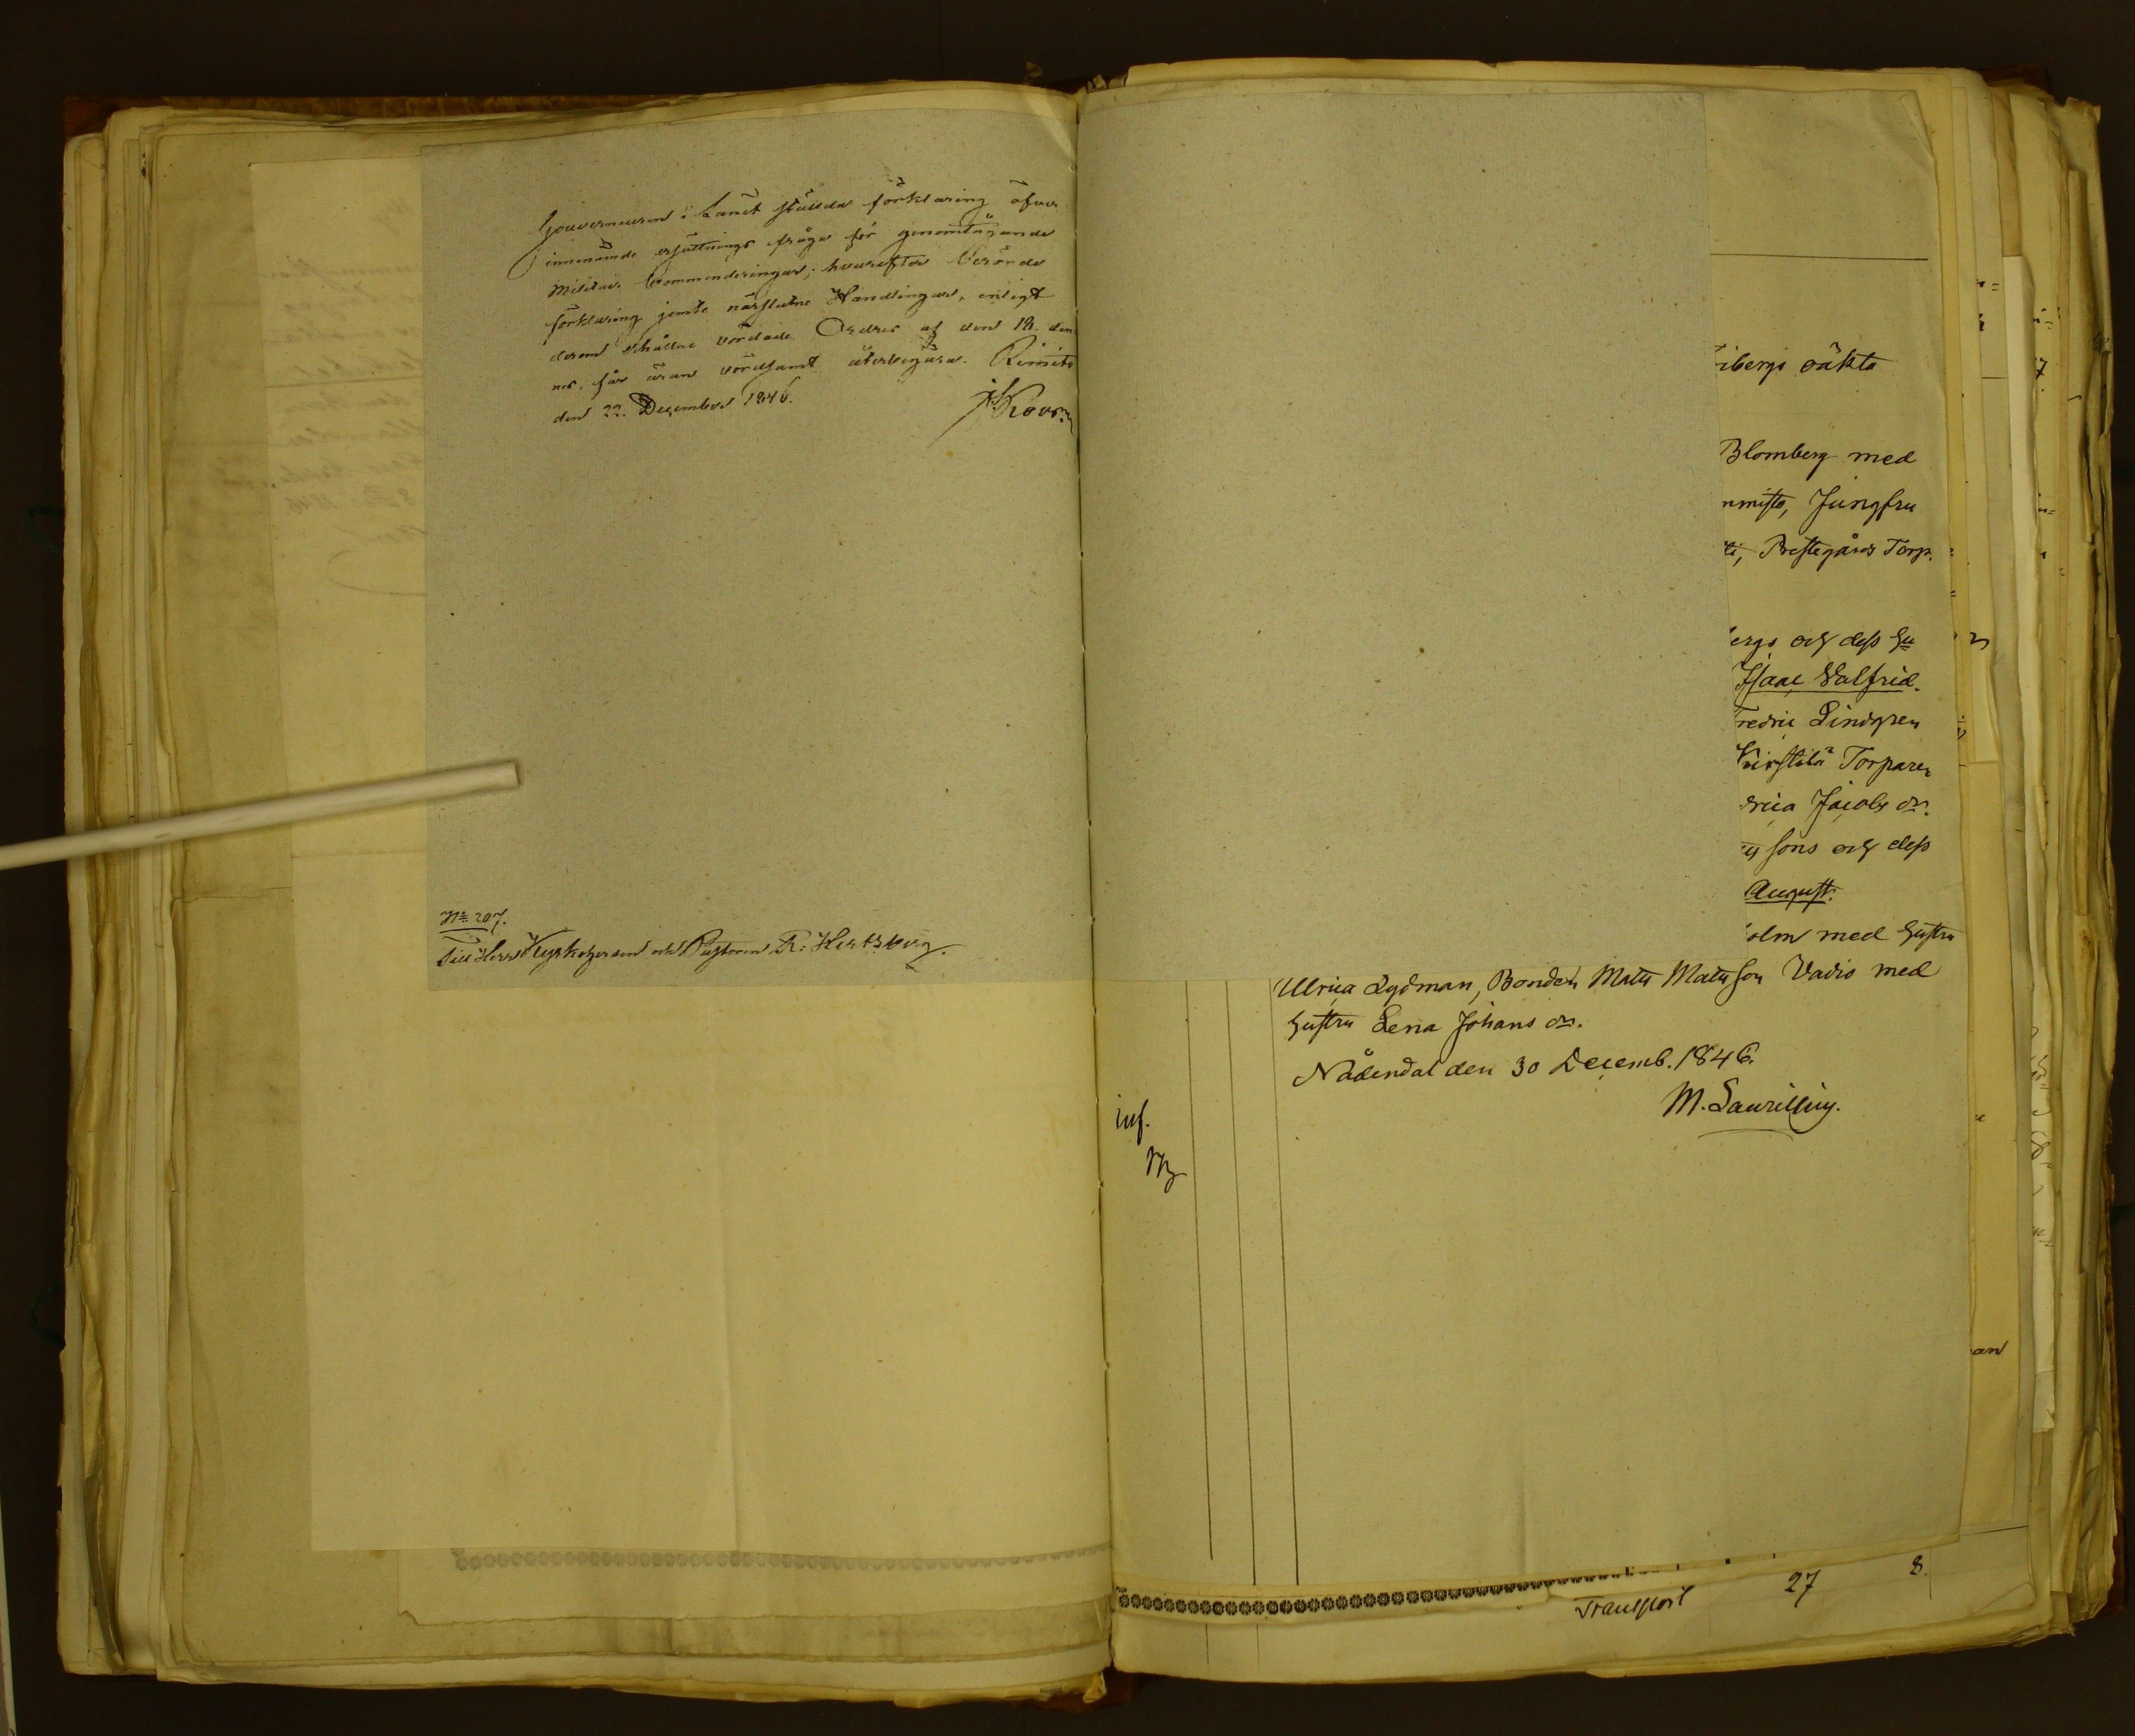 Gouverneuren i Länet stäılda förklaring öfver
innämnde ersättnings fråga för genomtågande
Militair Commenderingar; hvarefter berörde
förklaring jemte närslutne Handlingar, enligt
derom erhållne vördade Ordres af den 18. den-
nes, får äran vördsamt återbegära. Rimito
den 22. December 1846.
No 207.
Till Herr Kyrkoherden och Pastoren R. Hertzberg.
ibergs oäkta
Blomberg med
Jungfru
Prestegårds Torp.
ergs och dess Hu
Isaac Walfrid.
redric Lindgren
Torparen
rica Jacobs dr.
sons och dess
August.
olm med Hustru
Ulrica Lydman, Bonden Matts Mattsson Vadis med
Hustru Lena Johans dr.
Nådendal den 30 Decemb. 1846.
inf.
Transport 27 8.
an